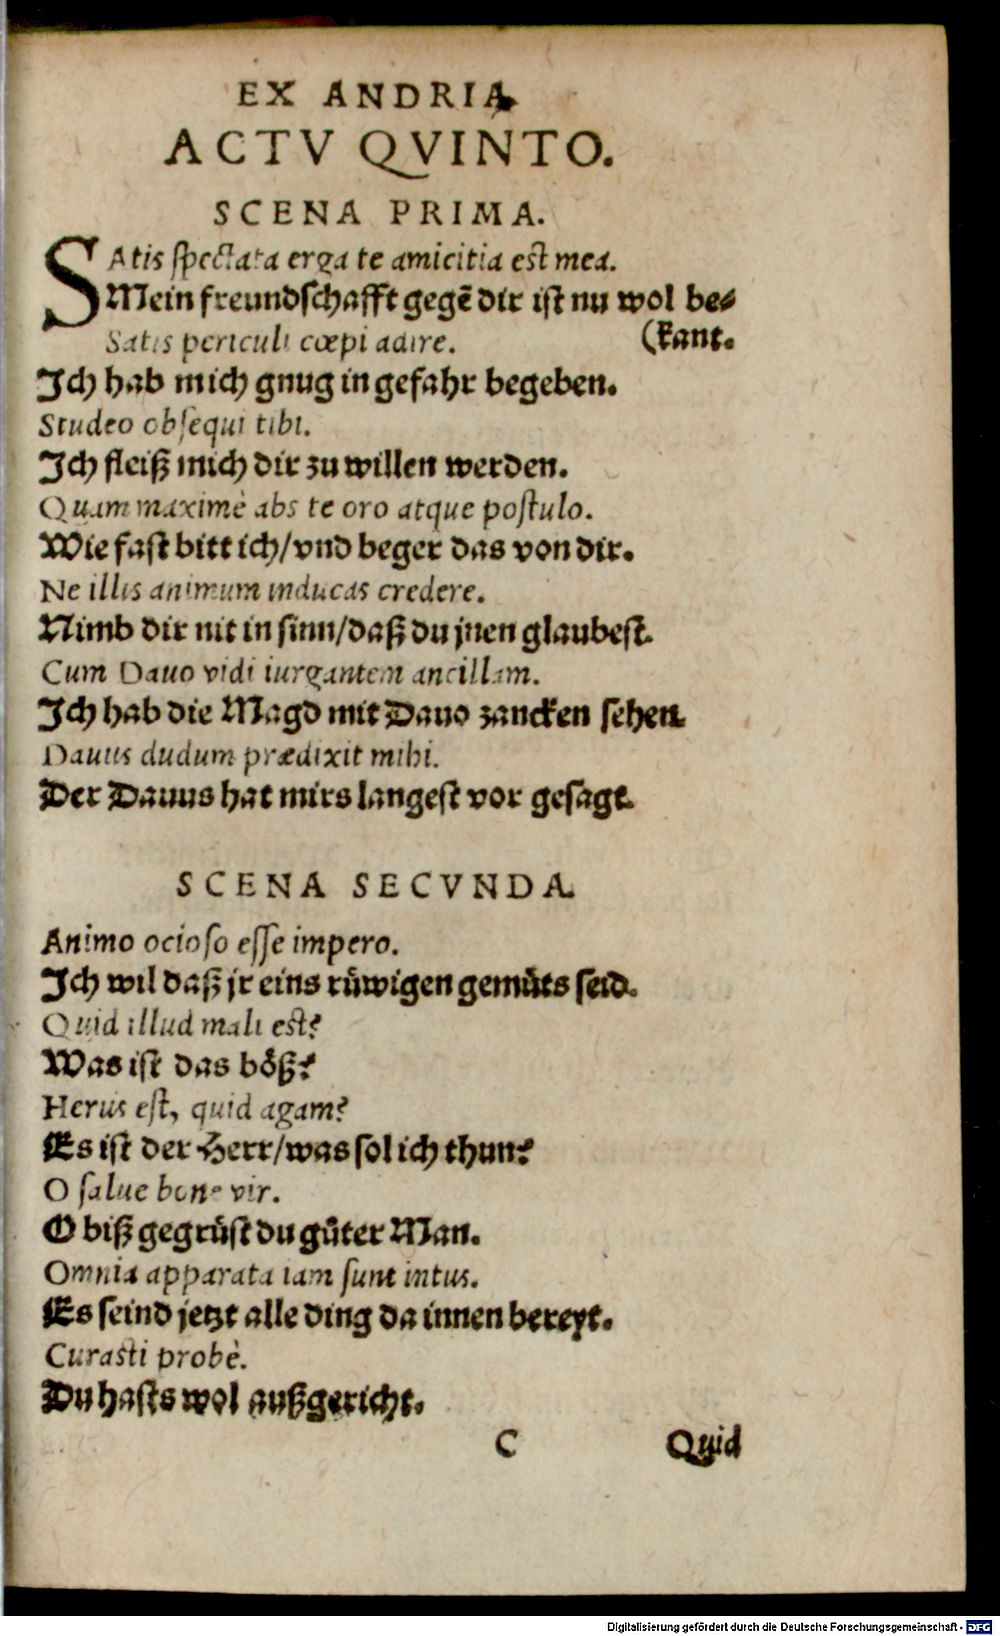 EX ANDRIA
ACTV QVINTO.
SCENA PRIMA.
SAtis spectata erga te amicitia est mea.
Mein freundschafft gegē dir ist nu wol be⸗
Satis periculi cœpi adire. (kant.
Ich hab mich gnug in gefahr begeben.
Studeo obsequi tibi.
Ich fleiß mich dir zu willen werden.
Quam maximè abs te oro atque postulo.
Wie fast bitt ich/vnd beger das von dir.
Ne illis animum inducas credere.
Nimb dir nit in sinn/daß du jnen glaubest.
Cum Dauo vidi iurgantem ancillam.
Ich hab die Magd mit Dauo zancken sehen.
Dauus dudum prædixit mihi.
Der Dauus hat mirs langest vor gesagt.
SCENA SECVNDA.
Animo ocioso esse impero.
Ich wil daß jr eins rüwigen gemüts seid.
Quid illud mali est?
Was ist das böß?
Herus est, quid agam?
Es ist der Herr/was sol ich thun?
O salue bone vir.
O biß gegrüst du gůter Man.
Omnia apparata iam sunt intus.
Es seind jetzt alle ding da innen bereyt.
Curasti probè.
Du hasts wol außgericht.
C Quid
Digitalisierung gefördert durch die Deutsche Forschungsgemeinschaft - DFG